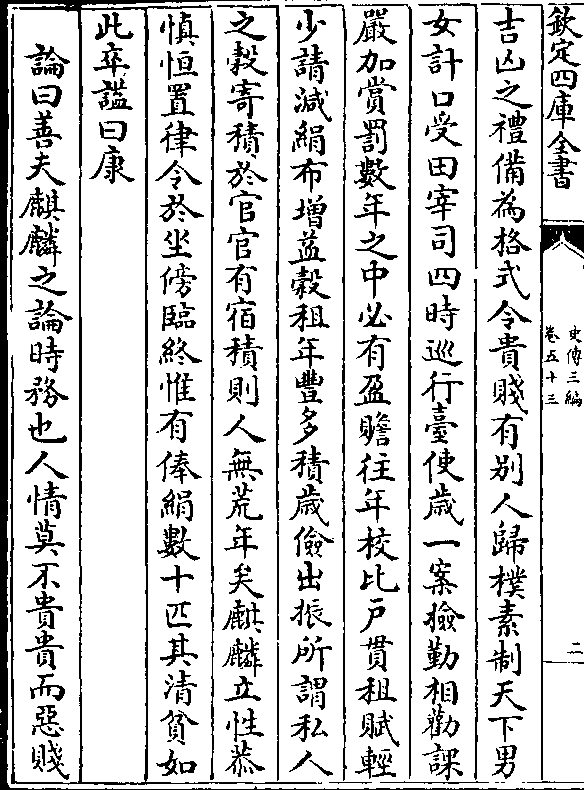 欽定四庫全書
史傳三編
卷五十三
二
吉凶之禮備為格式令貴賤有別人歸樸素制天下男
女計口受田宰司四時巡行臺使歲一案檢勤相勸課
嚴加賞罰數年之中必有盈贍往年校比戶貫租賦輕
少請減絹布增益穀租年豐多積歲儉出振所謂私人
之穀寄積於官官有宿積則人無荒年矣麒麟立性恭
慎恒置律令於坐傍臨終惟有俸絹數十匹其清貧如
此卒諡曰康
論曰善夫麒麟之論時務也人情莫不貴貴而惡賤